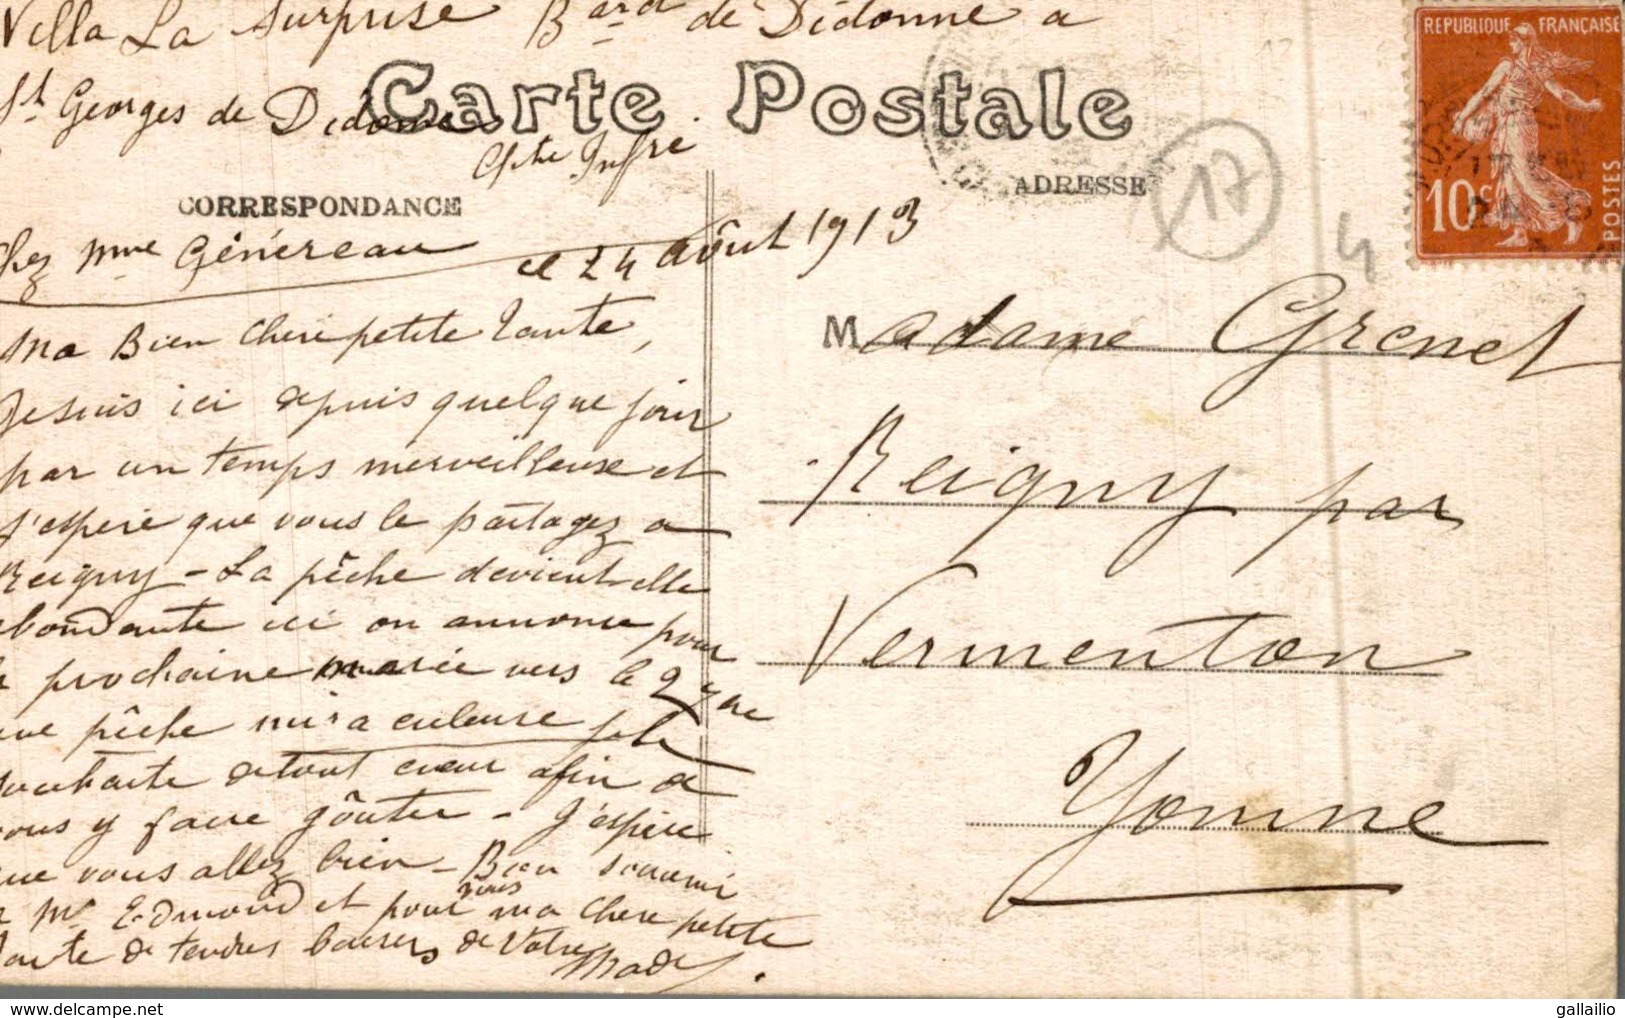 Villa La Surprise Bard de Didonne a
St Georges de Didonne
Carte Postale
Chte Infre
CORRESPONDANCE
ADRESSE
17
4
REPUBLIQUE FRANÇAISE
10c
POSTES
Chez Mme Généreau
le 24 Août 1913
Ma Bien chere petite Tante,
Je suis ici depuis quelque jour
par un temps merveilleuse et
j'espere que vous le partagez a
Reigny - La pêche devient elle
abondante ici on annonce pour
la prochaine marée vers le 2 7bre
une pêche miraculeuse je le
souhaite de tout coeur afin de
vous y faire goûter - J'espère
que vous allez bien - Bien souvenir
a Mr Edmond et pour vous ma chere petite
Tante de tendres baisers de Votre
Mady.
Madame Grenet
Reigny par
Vermenton
Yonne
gallailio